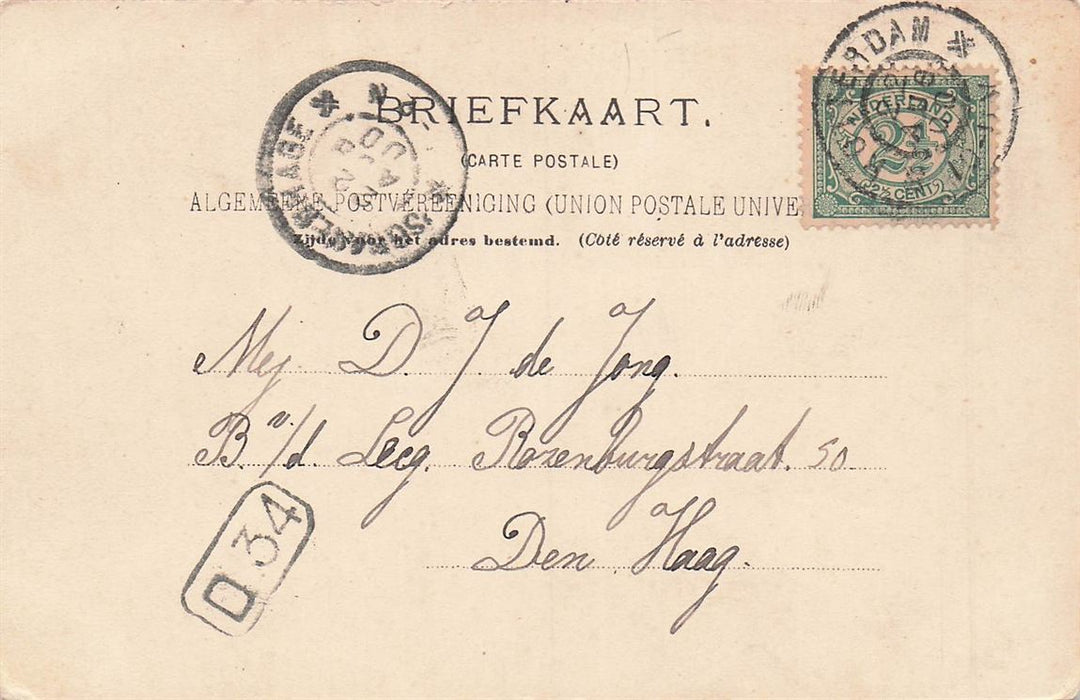 BRIEFKAART.
(CARTE POSTALE)
ALGEMEENE POSTVEREENIGING (UNION POSTALE UNIVE
Zijde voor het adres bestemd. (Côté réservé à l'adresse)
'SGRAVENHAGE
ERDAM
NEDERLAND
2½
(2½ CENT)
Mej. D. J. de Jong.
B. v/d. Leeg. Rozenburgstraat. 50
Den Haag.
D 34